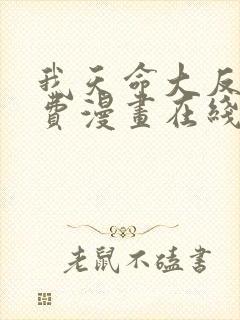 我天命大反
费漫畫在綫
老鼠不磕書